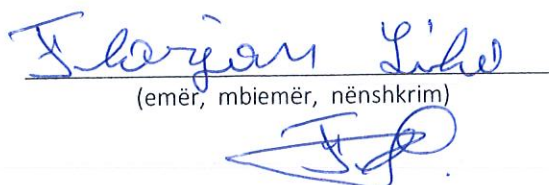 Florjan Liko
(emër, mbiemër, nënshkrim)